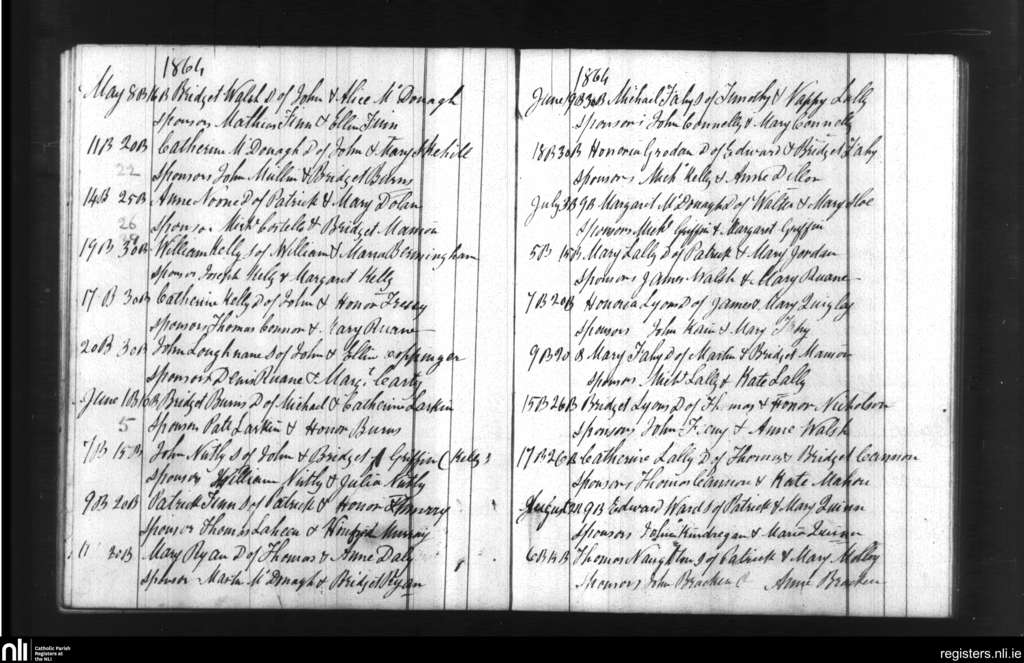 1864
May 8B 16B Bridget Walsh D of John & Alice McDonagh
Sponsors Mathew Finn & Ellen Finn
11B 20B Catherine McDonagh D of John & Mary
22 Sponsors John Mullin & Bridget Burns
14B 25B Anne Noone D of Patrick & Mary Dolan
26 Sponsor Michl Costello & Bridget Mannion
19B 30B William Kelly S of William & Maria Bermingham
Sponsor Joseph Kelly & Margaret Kelly
17B 30B Catherine Kelly D of John & Honor
Sponsors Thomas Connor & Mary Ruane
20B 30B John Loughnane S of John & Ellen
Sponsors Denis Ruane & Margt Carty
June 1B Bridget Burns D of Michael & Catherine Larkin
5 Sponsors Patt Larkin & Honor Burns
7B 15B John Nutly S of John & Bridget Griffin (Kelly)
Sponsor William Nutly & Julia Nutly
9B 20B Patrick Finn S of Patrick & Honor
Sponsor Thomas Laheen & Murray
11 20B Mary Ryan D of Thomas & Anne Daly
Sponsor Martin McDonagh & Bridget Ryan
1864
June 19B 30B Michael Fahy S of Timothy & Nappy Lally
Sponsors John Connelly & Mary Connolly
18B 30B Honoria Grodan D of Edward & Bridget Fahy
Sponsors Michl Kelly & Annie Dillon
July 3B 9B Margaret McDonagh D of Walter & Mary
Sponsors Michl Griffin & Margaret Griffin
5B 15B Mary Lally D of Patrick & Mary Jordan
Sponsors James Walsh & Mary Ruane
7B 20B Honoria Lyons D of James & Mary Quigley
Sponsors John Kain & Mary Fahy
9B 20B Mary Fahy D of Martin & Bridget Mannion
Sponsors Michl Lally & Kate Lally
15B 26B Bridget Lyons D of Thomas & Honor Nicholson
Sponsors John Feeny & Anne Walsh
17B 26B Catherine Lally D of Thomas & Bridget Cannon
Sponsors Thomas Cannon & Kate Mahon
August 2B 9B Edward Ward S of Patrick & Mary Quinn
Sponsors John Kindregan & Maria Quinn
6B 14B Thomas Naughton S of Patrick & Mary Molloy
Sponsors John Bracken & Annie Bracken
nli
Catholic Parish
Registers at
the NLI
registers.nli.ie